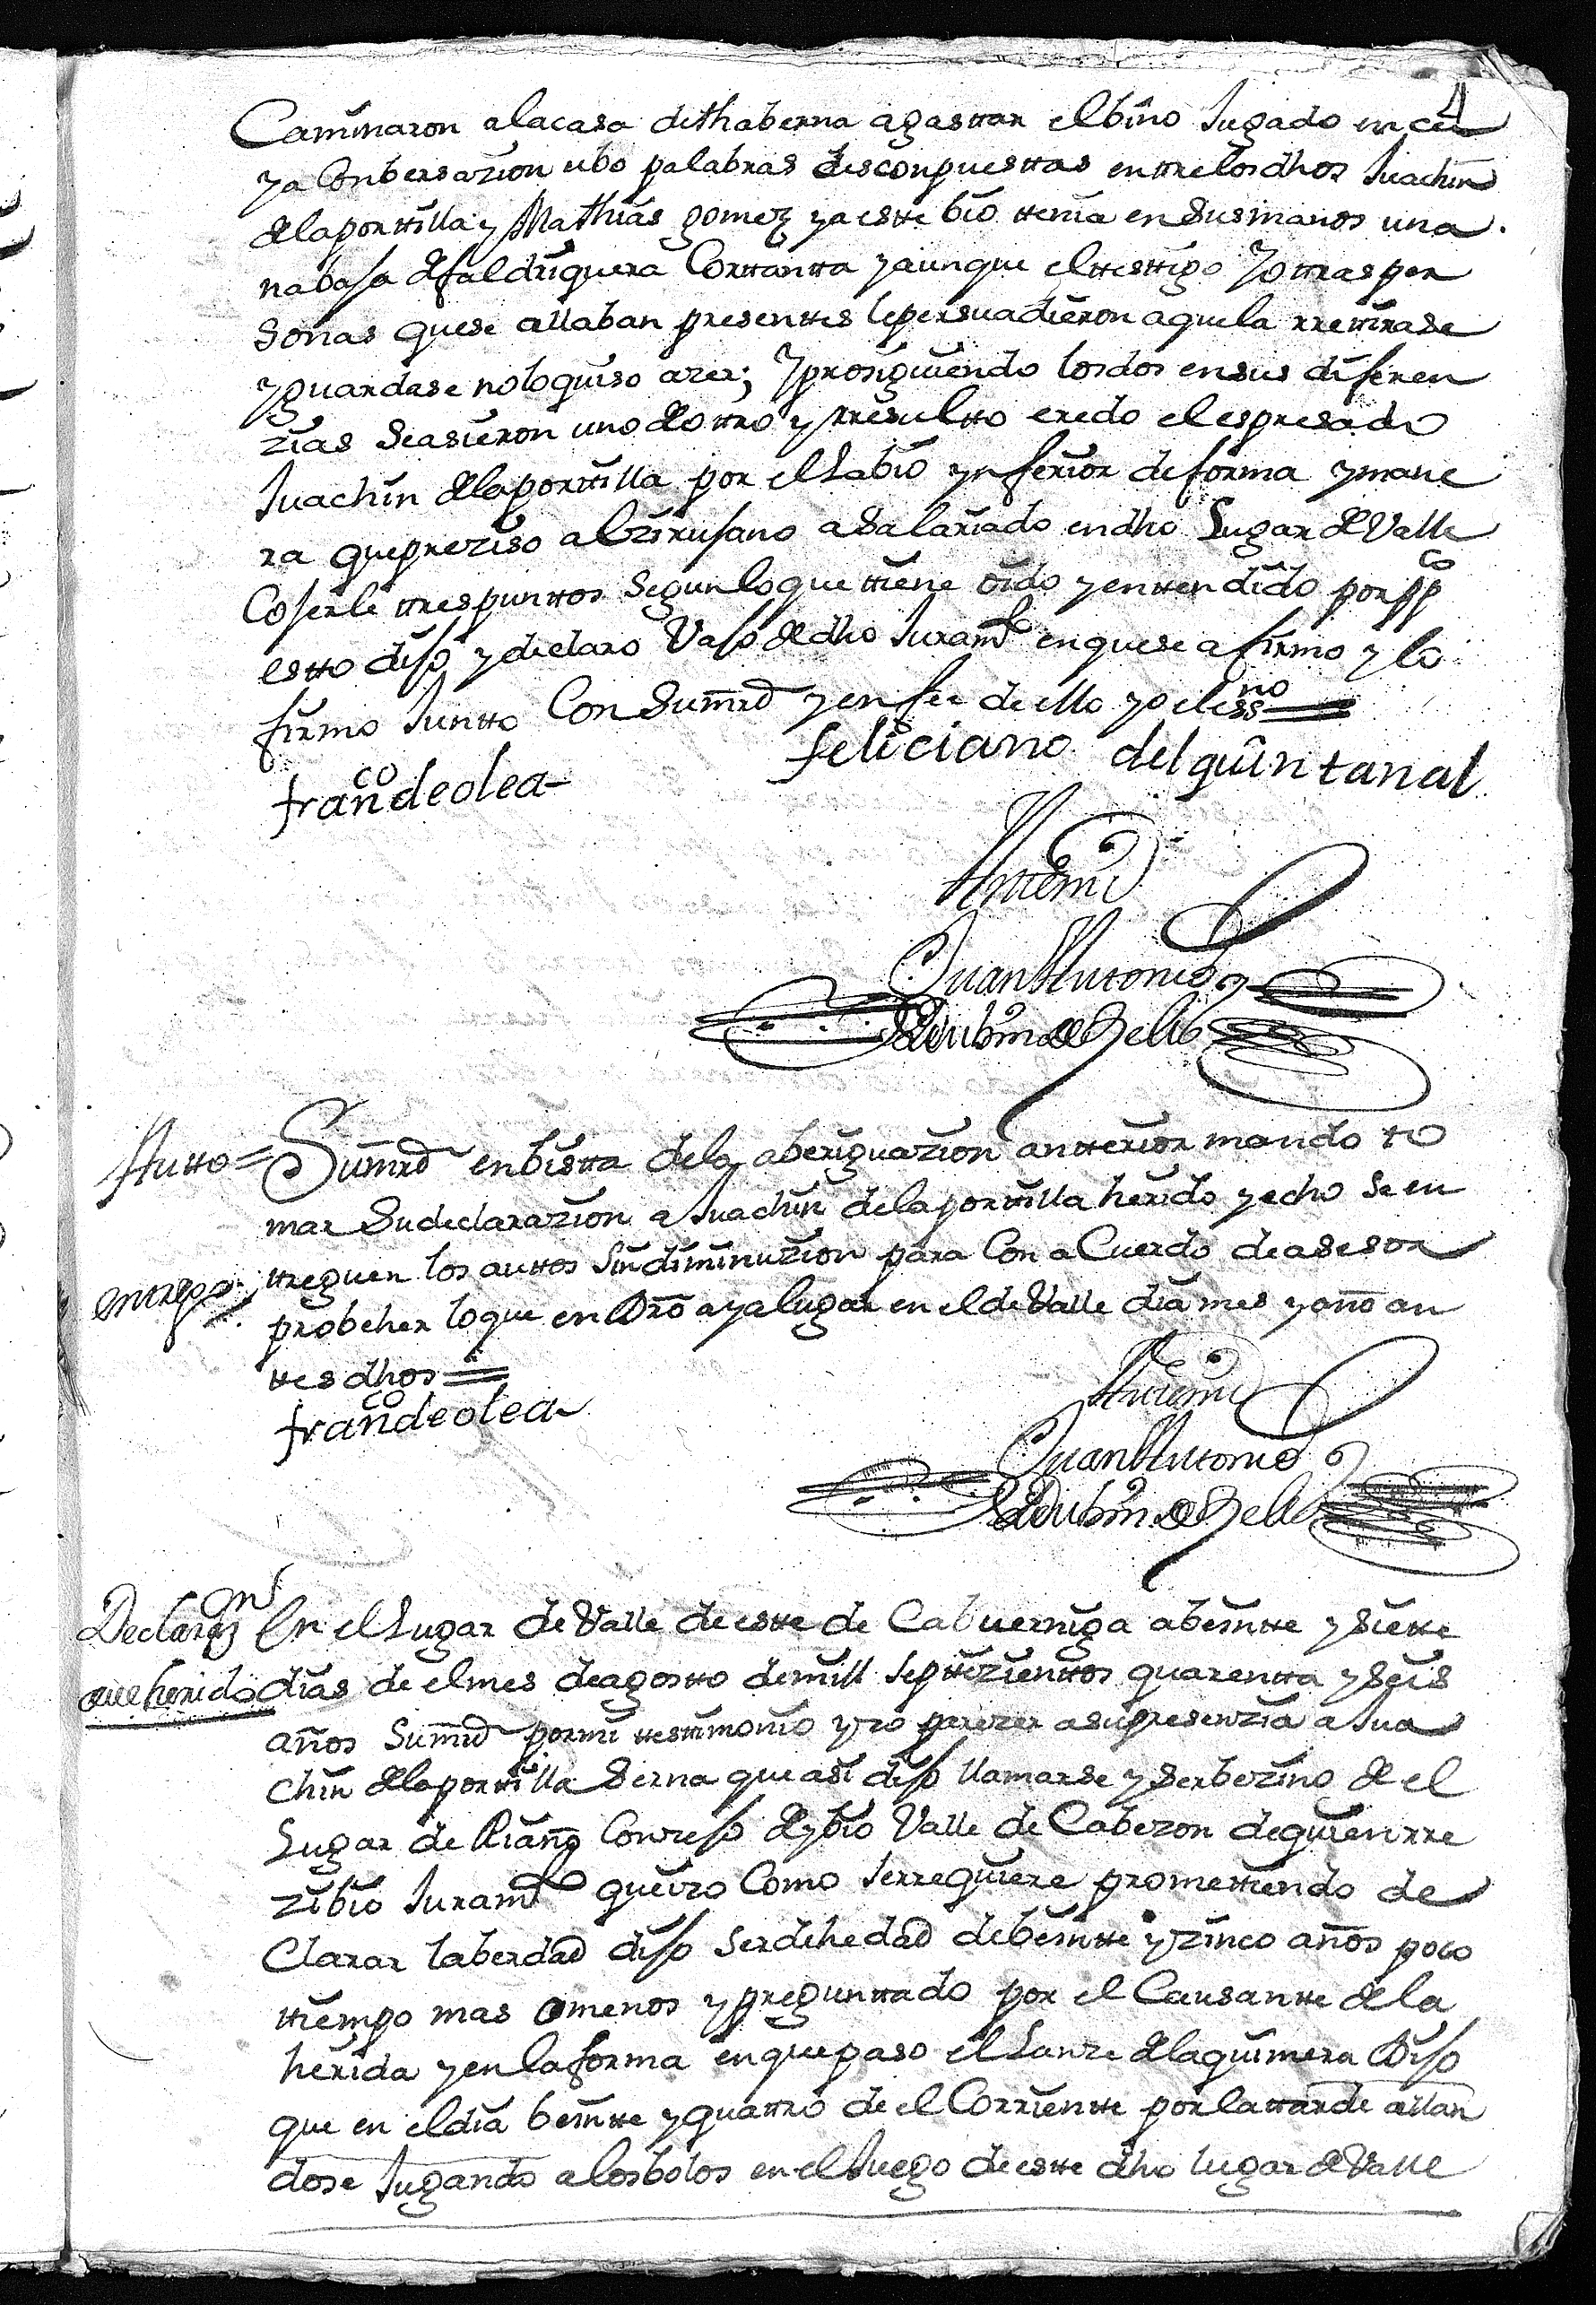 4
Caminaron a la casa de thaberna a gasttar el bino Jugado en cu
ya Conbersazion ubo palabras desconpuesttas enttre los dhos Juachin
de la porttilla y Mathias gomez y a estte bio ttenia en sus manos una
nabaja de faldriquera Corttantta y aunque el ttesttigo y ottras per
sonas que se allaban presenttes le persuadieron a que la rrettirase
y guardase no lo quiso azer; y prosiguiendo los dos en sus diferen
zias se asieron uno de ottro y rresultto eredo el espresado
Juachin de la porttilla por el Labio ynferior de forma y mane
ra que prezisso al zirujano asalariado en dho Lugar de Valle
Coserle ttres punttos segun lo que ttiene oido y enttendido por ppco
estto dijo y declaro Vajo de dho Juramto en que se afirmo y lo
firmo Juntto Con Su mrd y en fee de ello yo el essno =
franco de olea feliciano del quintanal
Antte mi
Juan Antonio
Rubin de Zelis
Autto = Su mrd en bistta de la aberiguazion antterior mando to
mar su declarazion a Juachin de la porttilla herido y echo se en
entregо; ttreguen los auttos sin diminuzion para Con aCuerdo de asesor
probeher lo que en Dro aya lugar en el de Valle dia mes y año an
ttes dhos =
franco de olea
Antte mi
Juan Antonio
Rubin de Zelis
Declarazn En el Lugar de Valle de estte de Cabuerniga a beintte y siette
del herido dias de el mes de agostto de mill settezienttos quarentta y seis
años Su mrd por mi ttesttimonio yzo parezer a su presenzia a Jua
chin de la porttilla Serna que asi dijo llamarse y ser bezino de el
Lugar de Riaño Conzejo de ybio Valle de Cabezon de quien rre
zibio Juramto que yzo Como se rrequiere promettiendo de
Clarar la berdad dijo ser de hedad de beintte y zinco años poco
ttiempo mas o menos y preguntado por el Causantte de la
herida y en la forma en que paso el Lanze de la quimera Dijo
que en el dia beintte y quattro de el Corrientte por la ttarde allan
dose Jugando a los bolos en el Juego de estte dho lugar de Valle